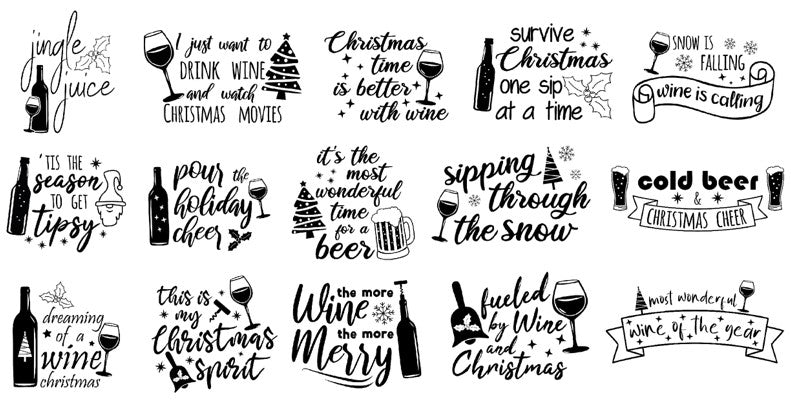 jingle
juice
I just want to
DRINK WINE
and watch
CHRISTMAS MOVIES
Christmas
time
is better
with wine
survive
Christmas
one sip
at a time
SNOW IS
FALLING
wine is calling
'TIS THE
season
TO GET
tipsy
pour the
holiday
cheer
it's the
most
wonderful
time
for a
beer
sipping
through
the snow
cold beer
&
CHRISTMAS CHEER
dreaming
of a
wine
christmas
this is
my
Christmas
spirit
the more
Wine
the more
Merry
fueled
by Wine
and
Christmas
most wonderful
wine of the year